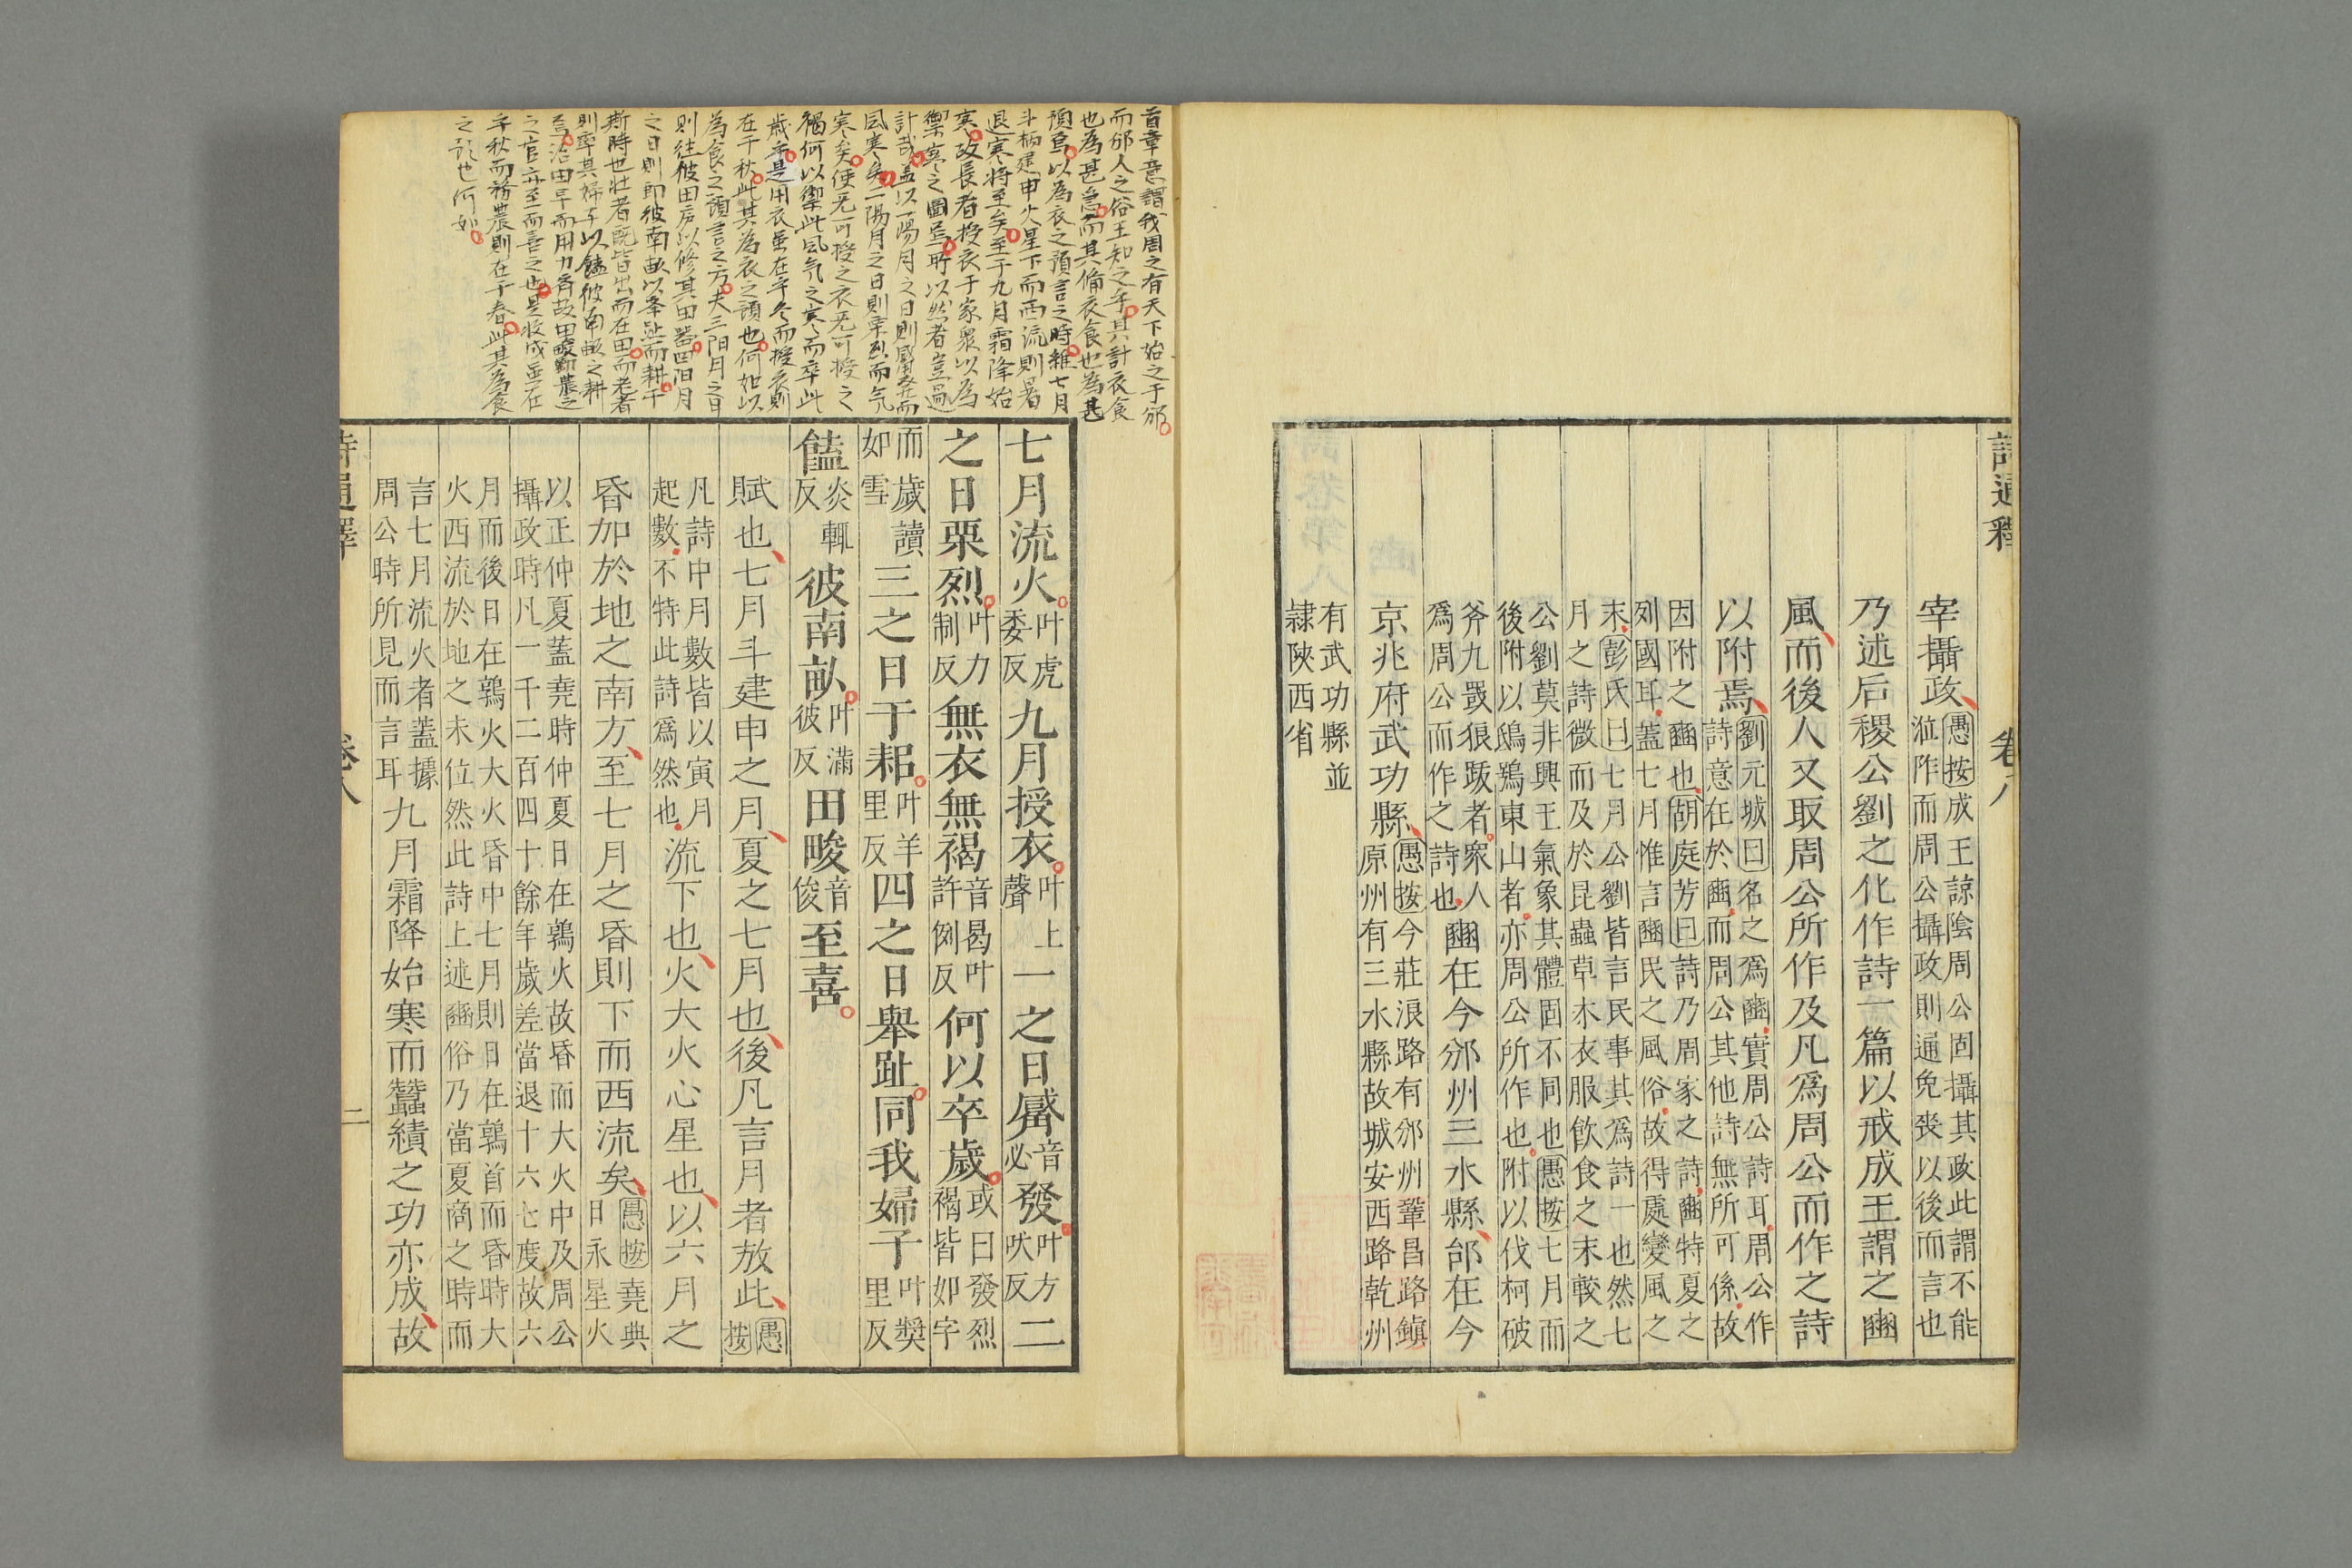 詩通釋
卷八
宰攝政
愚按成王諒陰周公固攝其政此謂不能
涖阼而周公攝政則通免喪以後而言也
乃述后稷公劉之化作詩一篇以戒成王謂之豳
風而後人又取周公所作及凡爲周公而作之詩
以附焉
劉元城曰名之爲豳實周公詩耳周公作
詩意在於豳而周公其他詩無所可係故
因附之豳也胡庭芳曰詩乃周家之詩豳特夏之
列國耳蓋七月惟言豳民之風俗故得處變風之
末彭氏曰七月公劉皆言民事其爲詩一也然七
月之詩微而及於昆蟲草木衣服飲食之末較之
公劉莫非興王氣象其體固不同也愚按七月而
後附以鴟鴞東山者亦周公所作也附以伐柯破
斧九罭狼跋者衆人
爲周公而作之詩也
豳在今邠州三水縣邰在今
京兆府武功縣
愚按今莊浪路有邠州鞏昌路鎮
原州有三水縣故城安西路乾州
有武功縣並
隸陝西省
首章意謂我周之有天下始之于邠
而邠人之俗王知之乎其計衣食
也為甚急而其備衣食也為甚
預焉以為衣之預言之時維七月
斗柄建申火星下而西流則暑
退寒將至矣至于九月霜降始
寒故長者授衣于家衆以為
禦寒之圖焉所以然者豈過
計哉盖以一陽月之日則風發而
風寒矣二陽月之日則栗烈而氣
寒矣使无可授之衣无可授之
褐何以禦此風气之寒而卒此
歲乎是用衣虽在乎冬而授衣則
在于秋此其為衣之預也何如以
為食之預言之方夫三阳月之日
則往彼田房以修其田器四阳月
之日則即彼南畝以举趾而耕于
斯時也壯者既皆出而在田而老者
則率其婦子以饁彼南畝之耕
者治田早而用力齊故田畯勸農之
之官亦至而喜之也是收成虽在
乎秋而務農則在于春此其為食
之預也何如
七月流火
叶虎
委反
九月授衣
叶上
聲
一之日觱
音
必
發
叶方
吠反
二
之日栗烈
叶力
制反
無衣無褐
音曷叶
許例反
何以卒歲
或曰發烈
褐皆如字
而歲讀
如雪
三之日于耜
叶羊
里反
四之日舉趾同我婦子
叶奬
里反
饁
炎輒
反
彼南畝
叶滿
彼反
田畯
音
俊
至喜
賦也七月斗建申之月夏之七月也後凡言月者放此
愚
按
凡詩中月數皆以寅月
起數不特此詩爲然也
流下也火大火心星也以六月之
昏加於地之南方至七月之昏則下而西流矣
愚按堯典
日永星火
以正仲夏蓋堯時仲夏日在鶉火故昏而大火中及周公
攝政時凡一千二百四十餘年歲差當退十六七度故六
月而後日在鶉火大火昏中七月則日在鶉首而昏時大
火西流於地之未位然此詩上述豳俗乃當夏商之時而
言七月流火者蓋據
周公時所見而言耳
九月霜降始寒而蠶績之功亦成故
詩通釋
卷八
二